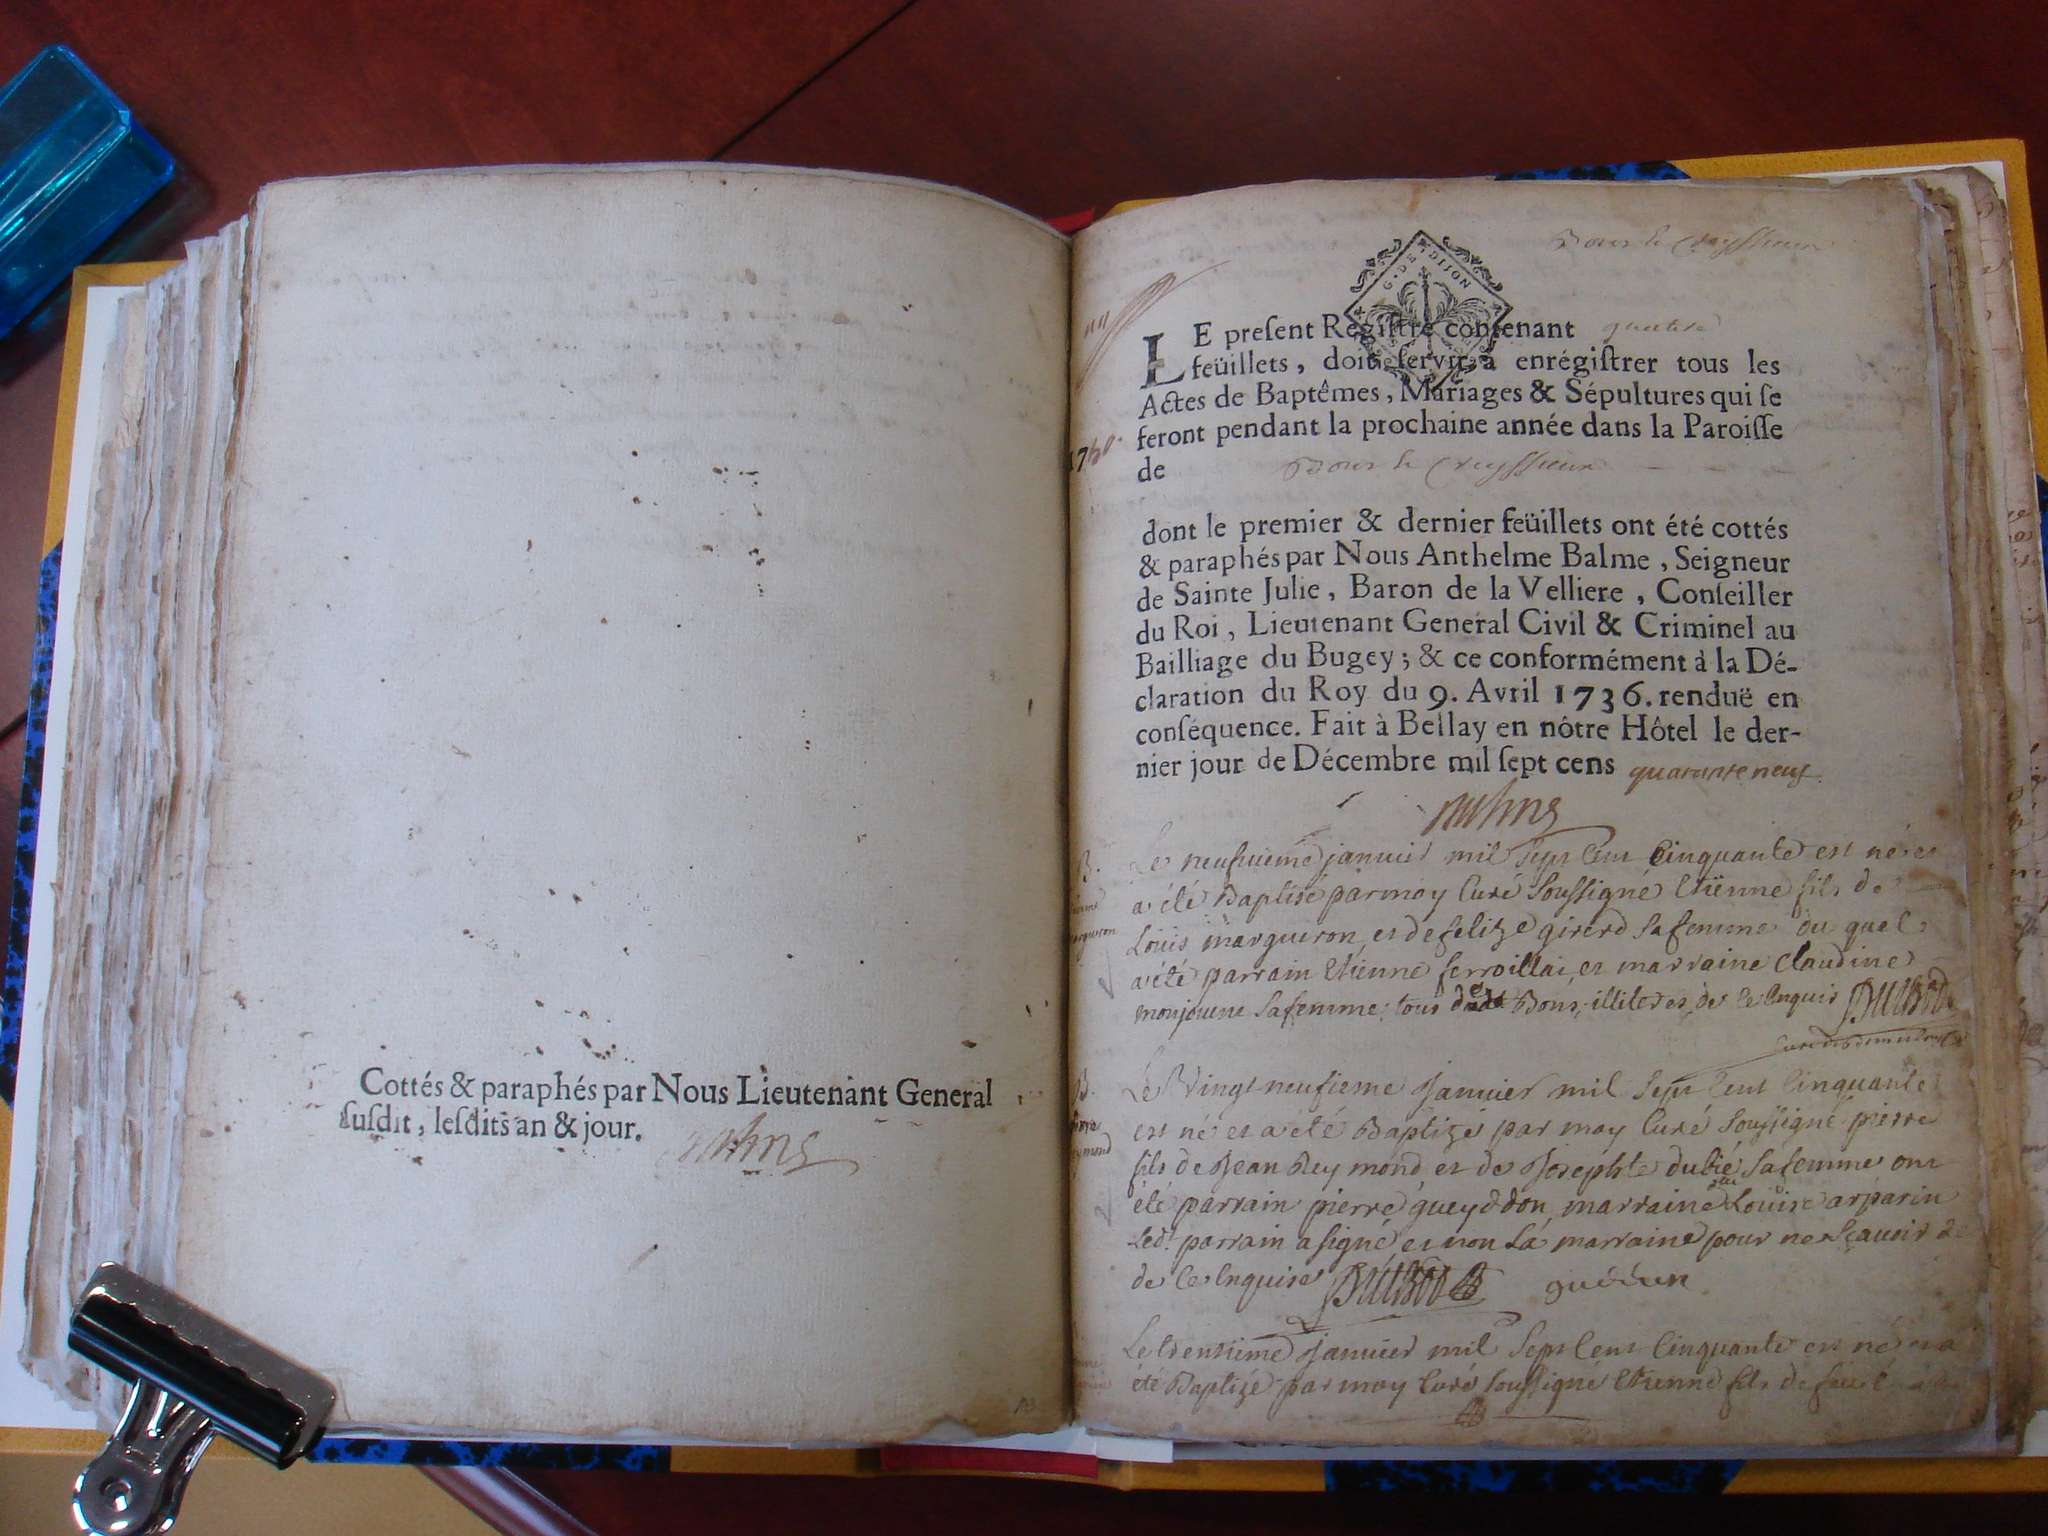 Cottés & paraphés par Nous Lieutenant General
susdit, lesdits an & jour.
G. DE DIJON
LE present Registre contenant
feüillets, doit servir à enrégistrer tous les
Actes de Baptêmes, Mariages & Sépultures qui se
feront pendant la prochaine année dans la Paroisse
de
1750.
dont le premier & dernier feüillets ont été cottés
& paraphés par Nous Anthelme Balme, Seigneur
de Sainte Julie, Baron de la Velliere, Conseiller
du Roi, Lieutenant General Civil & Criminel au
Bailliage du Bugey; & ce conformément à la Dé-
claration du Roy du 9. Avril 1736. renduë en
conséquence. Fait à Bellay en nôtre Hôtel le der-
nier jour de Décembre mil sept cens quarante neuf.
B.
Le neufvieme janvier mil sept cent cinquante est né et
a été Baptisé par moy Curé soussigné Etienne fils de
Louis margueron et de felize girerd sa femme du quel
a été parrain Etienne ferroillai et marraine Claudine
monjouent sa femme, tous de Bons, illiteres de ce Enquis
B.
Le Vingt neufieme Janvier mil sept cent cinquante
est né et a été Baptizé par moy Curé soussigné pierre
fils de Jean Reymond et de Josephte dubié sa femme ont
été parrain pierre gueyddon marraine Louise arparin
Led. parrain a signé et non la marraine pour ne sçavoir
de ce Enquise guédun
Le trentieme Janvier mil sept cent cinquante est né et a
été Baptizé par moy Curé soussigné Etienne fils de